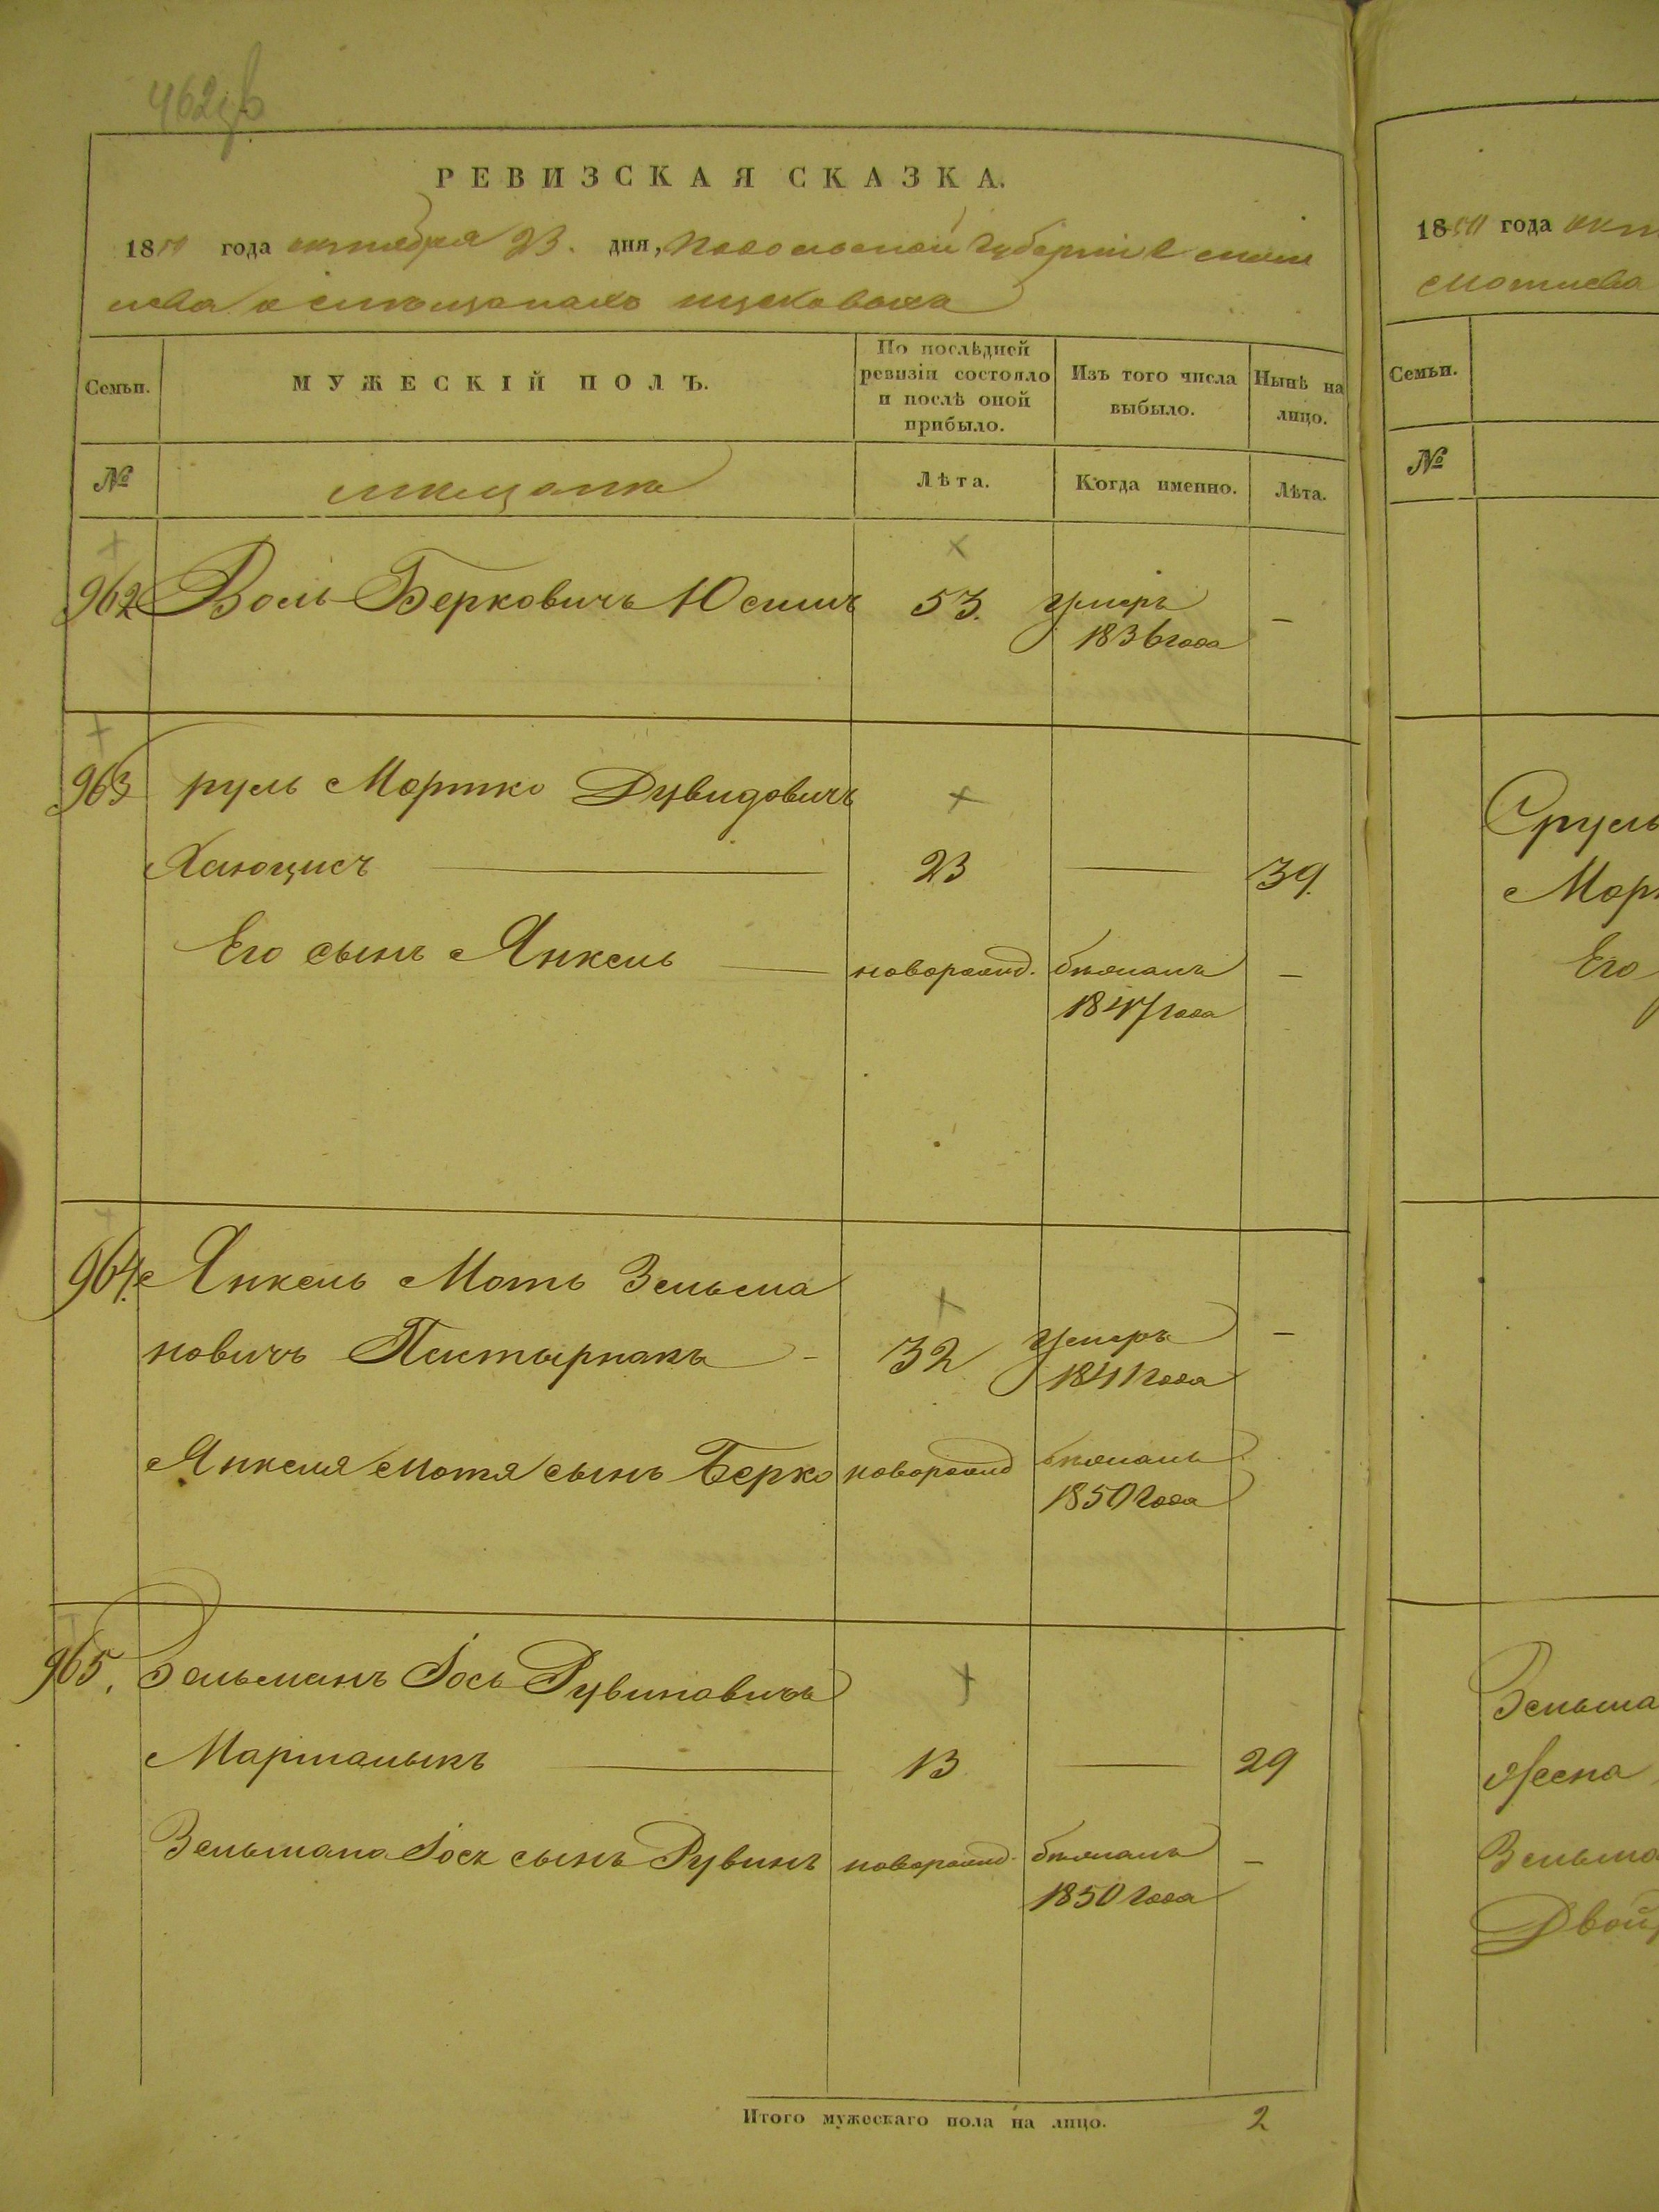 РЕВИЗСКАЯ СКАЗКА.
1850 года октября 23. дня, Подольской губерніи
Семьи.
МУЖЕСКІЙ ПОЛЪ.
По послѣдней ревизіи состояло и послѣ оной прибыло.
Изъ того числа выбыло.
Нынѣ на лицо.
№
Лѣта.
Когда именно.
Лѣта.
962 Воль Берковичъ 53. умеръ —
1836 года
963 Сруль Мортко Дувидовичъ
23 — 39.
Его сынъ Янкель — новорожд. бѣжалъ —
1847 года
964. Янкель Моть Зельма
новичъ Пастырнакъ - 32 умеръ —
1841 года
Янкеля Мотя сынъ Берко новорожд бѣжалъ
1850 года
965. Зельманъ Іось Рувиновичъ
13 — 29
Зельмана Іося сынъ Рувинъ новорожд. бѣжалъ —
1850 года
Итого мужескаго пола на лицо. 2
1850 года окт
Смотрича
Семьи.
№
Сруль
Морт
Его
Зельма
Жена
Зельма
Двой